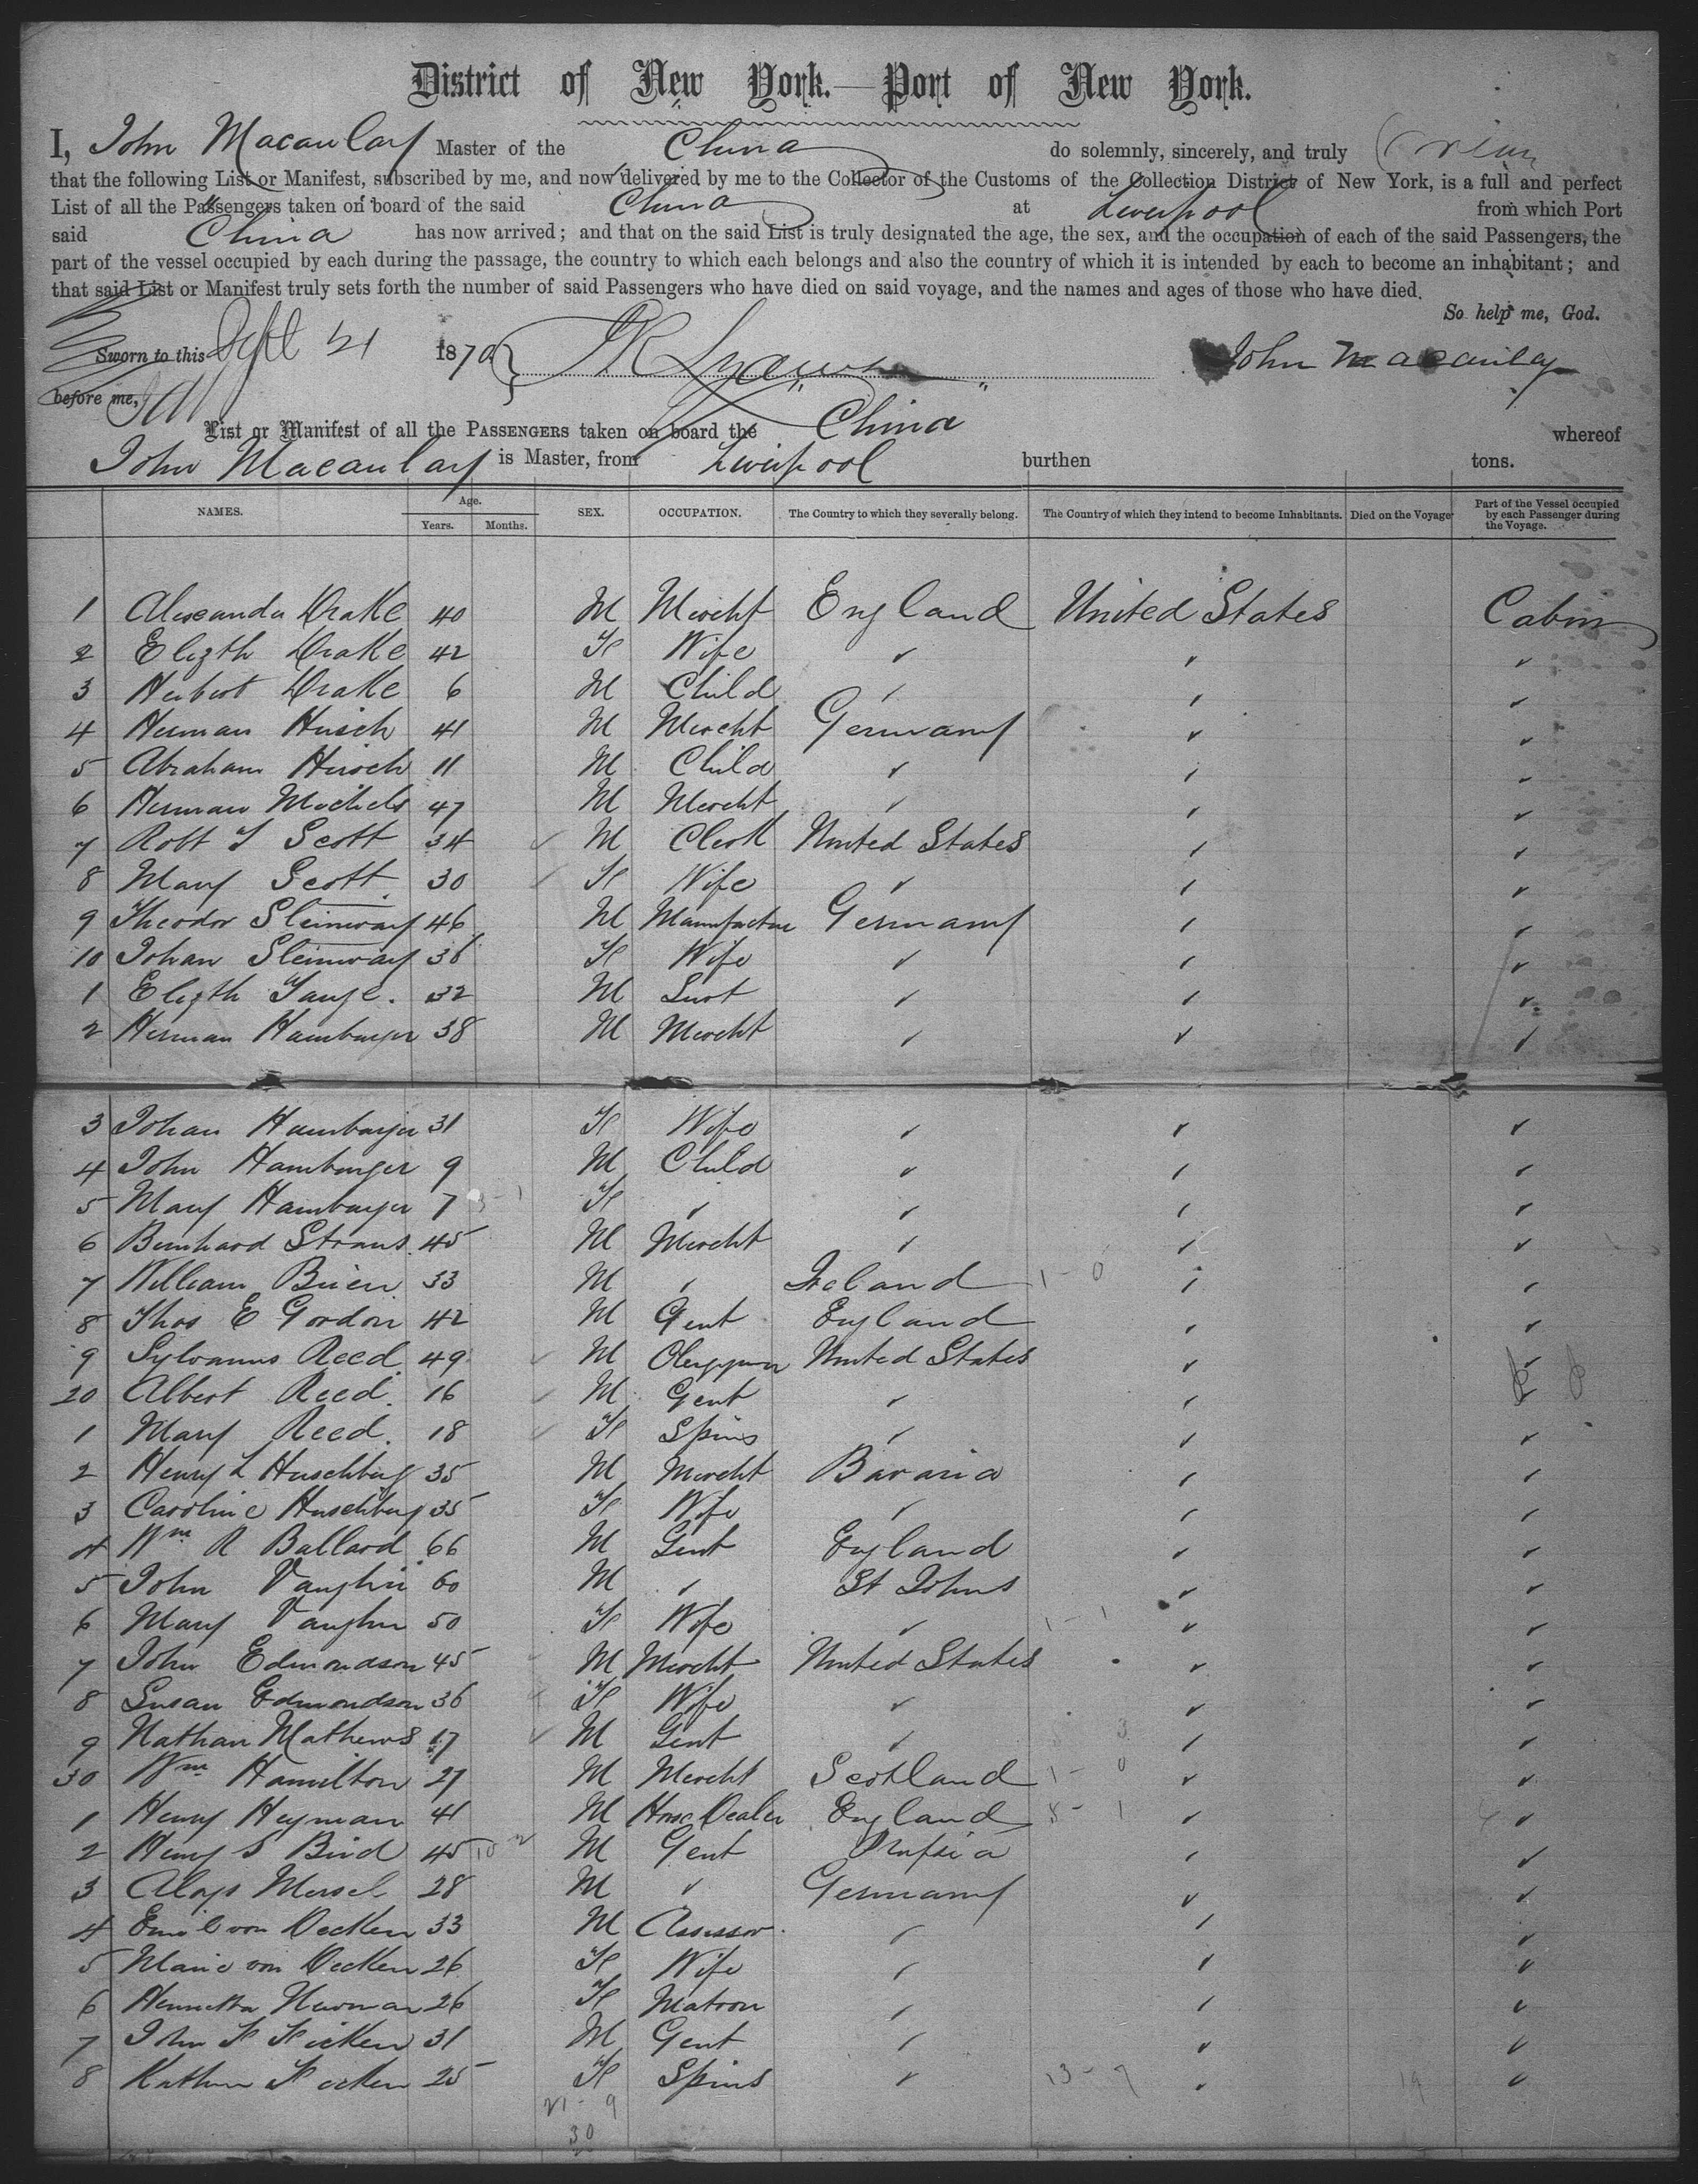 District of New York.— Port of New York.
I, John Macaulay Master of the China do solemnly, sincerely, and truly
that the following List or Manifest, subscribed by me, and now delivered by me to the Collector of the Customs of the Collection District of New York, is a full and perfect
List of all the Passengers taken on board of the said China at Liverpool from which Port
said China has now arrived; and that on the said List is truly designated the age, the sex, and the occupation of each of the said Passengers, the
part of the vessel occupied by each during the passage, the country to which each belongs and also the country of which it is intended by each to become an inhabitant; and
that said List or Manifest truly sets forth the number of said Passengers who have died on said voyage, and the names and ages of those who have died.
So help me, God.
Sworn to this Sept 21 1870 John Macaulay
before me,
List or Manifest of all the PASSENGERS taken on board the China whereof
John Macaulay is Master, from Liverpool burthen tons.
NAMES. Age. Years. Months. SEX. OCCUPATION. The Country to which they severally belong. The Country of which they intend to become Inhabitants. Died on the Voyage Part of the Vessel occupied by each Passenger during the Voyage.
1 Alexander Drake 40 M Mercht England United States Cabin
2 Elizth Drake 42 F Wife ✓ ✓ ✓
3 Herbert Drake 6 M Child ✓ ✓ ✓
4 Herman Hirsch 41 M Mercht Germany ✓ ✓
5 Abraham Hirsch 11 M Child ✓ ✓ ✓
6 Herman Michels 47 M Mercht ✓ ✓ ✓
7 Robt T Scott 34 M Clerk United States ✓ ✓
8 Mary Scott 30 F Wife ✓ ✓ ✓
9 Theodor Steinway 46 M Manufactur Germany ✓ ✓
10 Johan Steinway 36 F Wife ✓ ✓ ✓
1 Elizth 32 M Svt ✓ ✓ ✓
2 Herman Hamburger 38 M Mercht ✓ ✓ ✓
3 Johan Hamburger 31 F Wife ✓ ✓ ✓
4 John Hamburger 9 M Child ✓ ✓ ✓
5 Mary Hamburger 7 F ✓ ✓ ✓ ✓
6 Bernhard Straus 45 M Mercht ✓ ✓ ✓
7 William Brien 33 M ✓ Ireland ✓ ✓
8 Thos E Gordon 42 M Gent England ✓ ✓
9 Sylvanus Reed 49 M Clergyman United States ✓ ✓
20 Albert Reed 16 M Gent ✓ ✓ ✓
1 Mary Reed 18 F Spins ✓ ✓ ✓
2 Henry L Hirschberg 35 M Mercht Bavaria ✓ ✓
3 Caroline Hirschberg 35 F Wife ✓ ✓ ✓
4 Wm R Ballard 66 M Gent England ✓ ✓
5 John Vaughn 60 M ✓ St Johns ✓ ✓
6 Mary Vaughn 50 F Wife ✓ ✓ ✓
7 John Edmondson 45 M Mercht United States ✓ ✓
8 Susan Edmondson 36 F Wife ✓ ✓ ✓
9 Nathan Mathews 17 M Gent ✓ ✓ ✓
30 Wm Hamilton 27 M Mercht Scotland ✓ ✓
1 Henry Heyman 41 M Horse Dealer England ✓ ✓
2 Henry S Bird 45 M Gent Prussia ✓ ✓
3 Aloys 28 M ✓ Germany ✓ ✓
4 Emil von Decken 33 M Assessor ✓ ✓ ✓
5 Marie von Decken 26 F Wife ✓ ✓ ✓
6 Henrietta Newman 26 F Matron ✓ ✓ ✓
7 John F Ficken 31 M Gent ✓ ✓ ✓
8 Kathrn Ficken 25 F Spins ✓ ✓ ✓
21 - 9
30